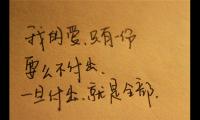 我的爱,只有一份
要么不付出,
一旦付出,就是全部.